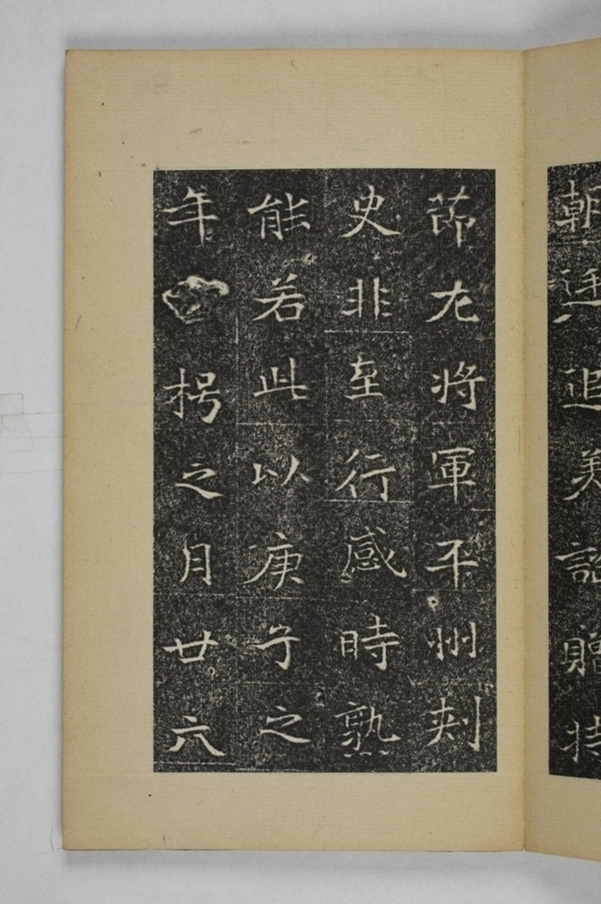 朝廷追美詔贈持
節左將軍平州刺
史非至行感時熟
能若此以庚子之
年枵之月廿六